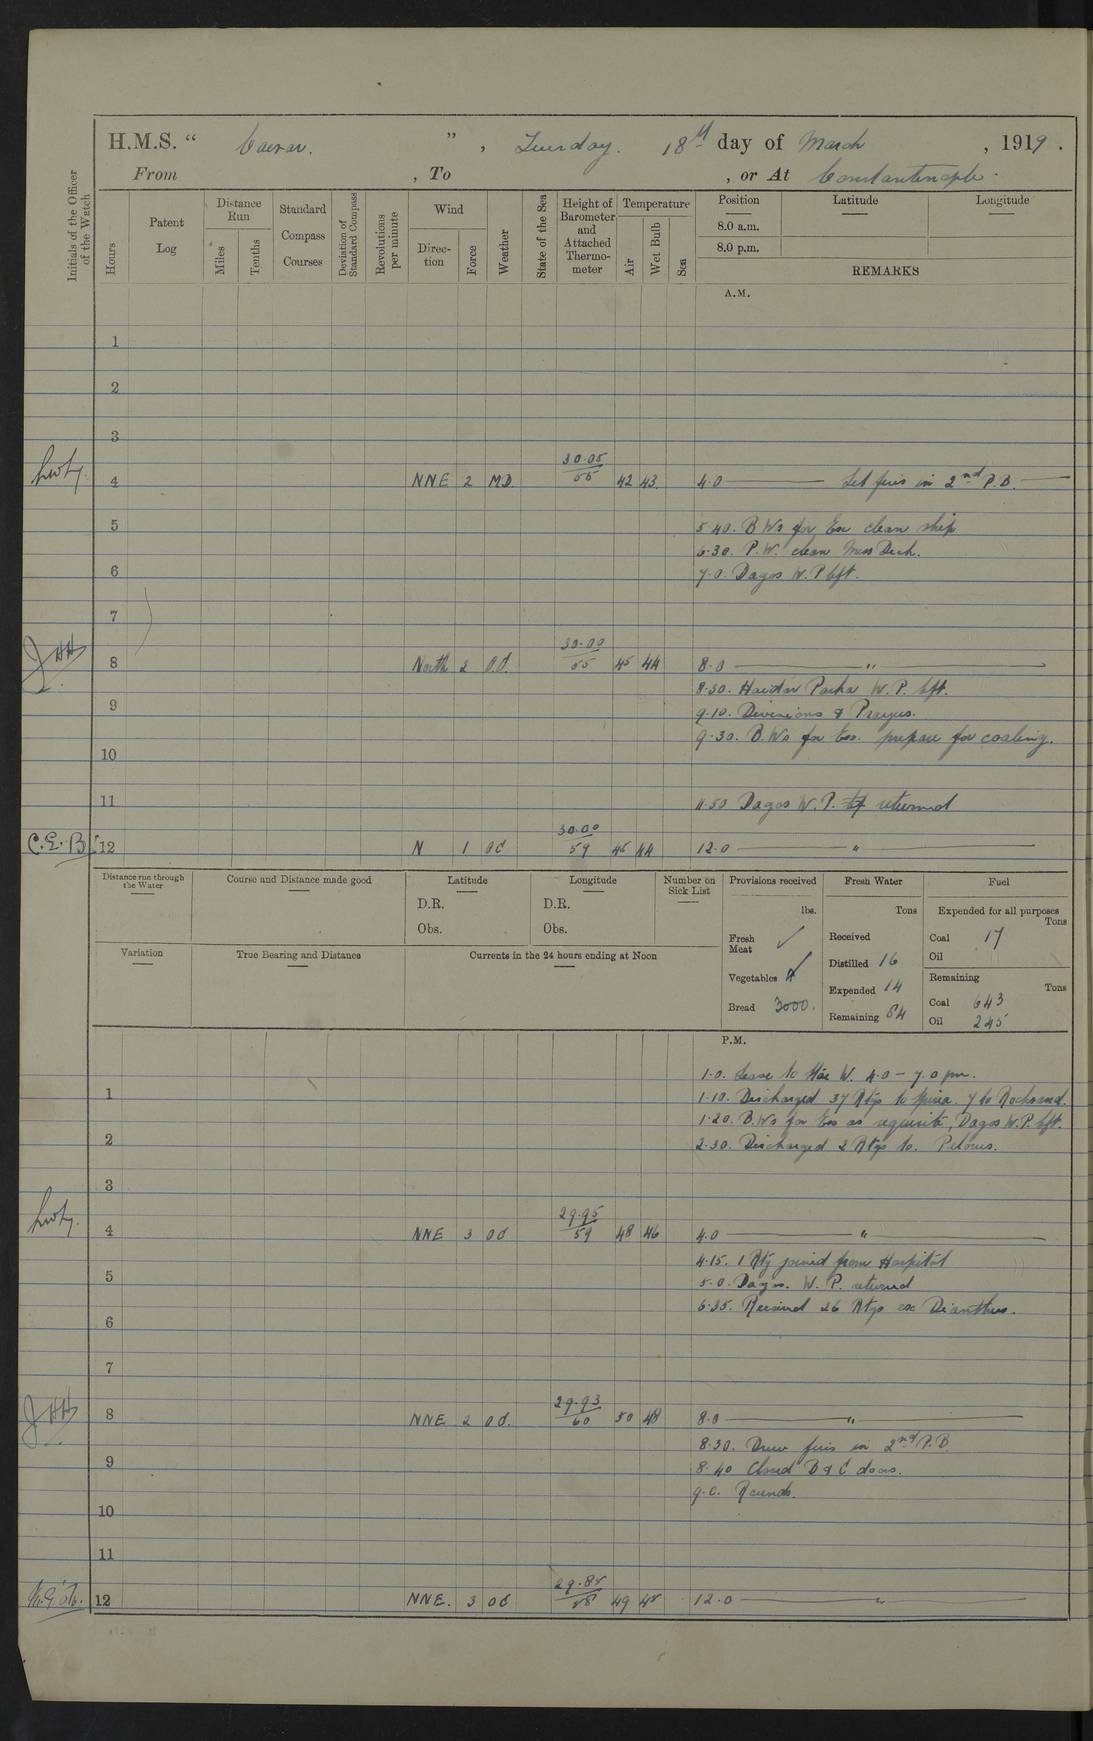 H.M.S. “ Caesar. ”, Tuesday. 18th day of March, 1919.
From , To , or At Constantinople.
Initials of the Officer of the Watch
Hours
Patent Log
Distance Run
Miles
Tenths
Standard Compass Courses
Deviation of Standard Compass
Revolutions per minute
Wind
Direction
Force
Weather
State of the Sea
Height of Barometer and Attached Thermometer
Temperature
Air
Wet Bulb
Sea
Position Latitude Longitude
8.0 a.m.
8.0 p.m.
REMARKS
A.M.
1
2
3
4 NNE 2 MD 30.05 55 42 43 4.0 Lit fires in 2nd P.B.
5 5.40. B Ws for Ex clean ship
6.30. P.W. clean Mess Deck.
6 7.0. Dagos W.P. lft.
7
JHH
8 North 2 O.d. 30.00 55 45 44 8.0 "
8.30. Haidar Pasha W.P. lft.
9 9.10. Divisions & Prayers.
9.30. B.Ws for Exs. prepare for coaling.
10
11 11.50 Dagos W.P. returned
C.E.B. 12 N 1 Od 30.00 59 45 44 12.0 "
Distance run through the Water
Course and Distance made good
Latitude
D.R.
Obs.
Longitude
D.R.
Obs.
Number on Sick List
Variation
True Bearing and Distance
Currents in the 24 hours ending at Noon
Provisions received
lbs.
Fresh Meat ✓
Vegetables
Bread 3000.
Fresh Water
Tons
Received
Distilled 16
Expended 14
Remaining 84
Fuel
Expended for all purposes
Tons
Coal 17
Oil
Remaining
Tons
Coal 643
Oil 245
P.M.
1.0. Leave to W. 4.0 – 7.0 pm.
1 1.10. Discharged 37 Rtgs to 7 to
1.20. B.Ws for Exs as requisite, Dagos W.P. lft.
2 2.30. Discharged 2 Rtgs to.
3
4 NNE 3 Od 29.95 59 48 46 4.0 "
4.15. 1 Rtg joined from Hospital
5 5.0. Dagos. W.P. returned
6.35. Received 26 Rtgs ex Dianthus.
6
7
JHH
8 NNE 2 Od. 29.93 60 50 48 8.0 "
8.30. Drew fires in 2nd P.B
9 8.40 Closed B & C doors.
9.0. Rounds.
10
11
12 NNE. 3 Od 29.85 58 49 48 12.0 "